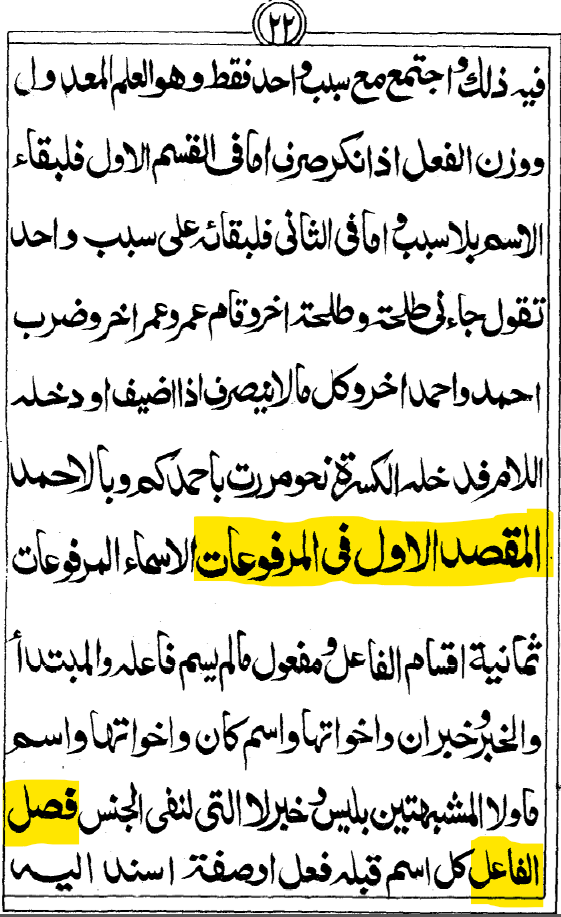 ٢٢
فيه ذلك واجتمع مع سبب واحد فقط وهو العلم المعدول
ووزن الفعل اذا نكر صرف اما فى القسم الاول فلبقاء
الاسم بلا سبب واما فى الثانى فلبقائه على سبب واحد
تقول جاءنى طلحة وطلحة اخر وقام عمر وعمر اخر وضرب
احمد واحمد اخر وكل مالا ينصرف اذا اضيف او دخله
اللام فدخله الكسرة نحو مررت باحمدكم وبالاحمد
المقصد الاول فى المرفوعات الاسماء المرفوعات
ثمانية اقسام الفاعل ومفعول مالم يسم فاعله والمبتدأ
والخبر وخبر ان واخواتها واسم كان واخواتها واسم
ما ولا المشبهتين بليس وخبر لا التى لنفى الجنس فصل
الفاعل كل اسم قبله فعل اوصفة اسند اليه